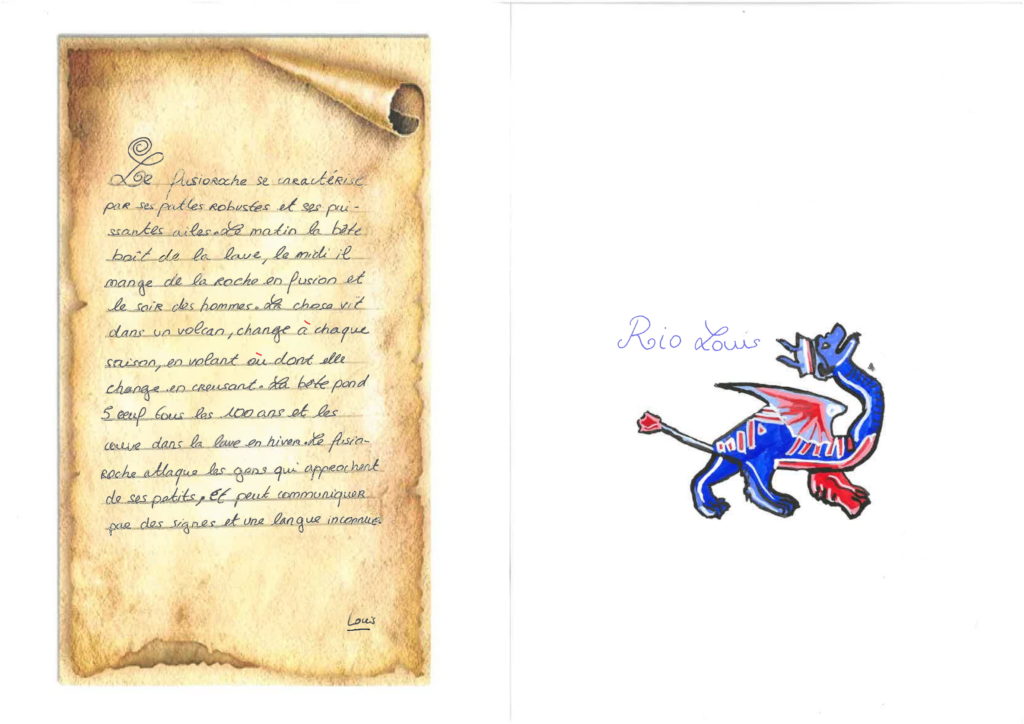 Le fusioroche se caractérise
par ses pattes robustes et ses pui-
ssantes ailes. Le matin la bête
boit de la lave, le midi il
mange de la roche en fusion et
le soir des hommes. La chose vit
dans un volcan, change à chaque
saison, en volant où dont elle
change en creusant. La bête pond
5 œuf tous les 100 ans et les
couve dans la lave en hiver. Le fusio-
roche attaque les gens qui approchent
de ses petits, et peut communiquer
par des signes et une langue inconnue.
Louis
Rio Louis